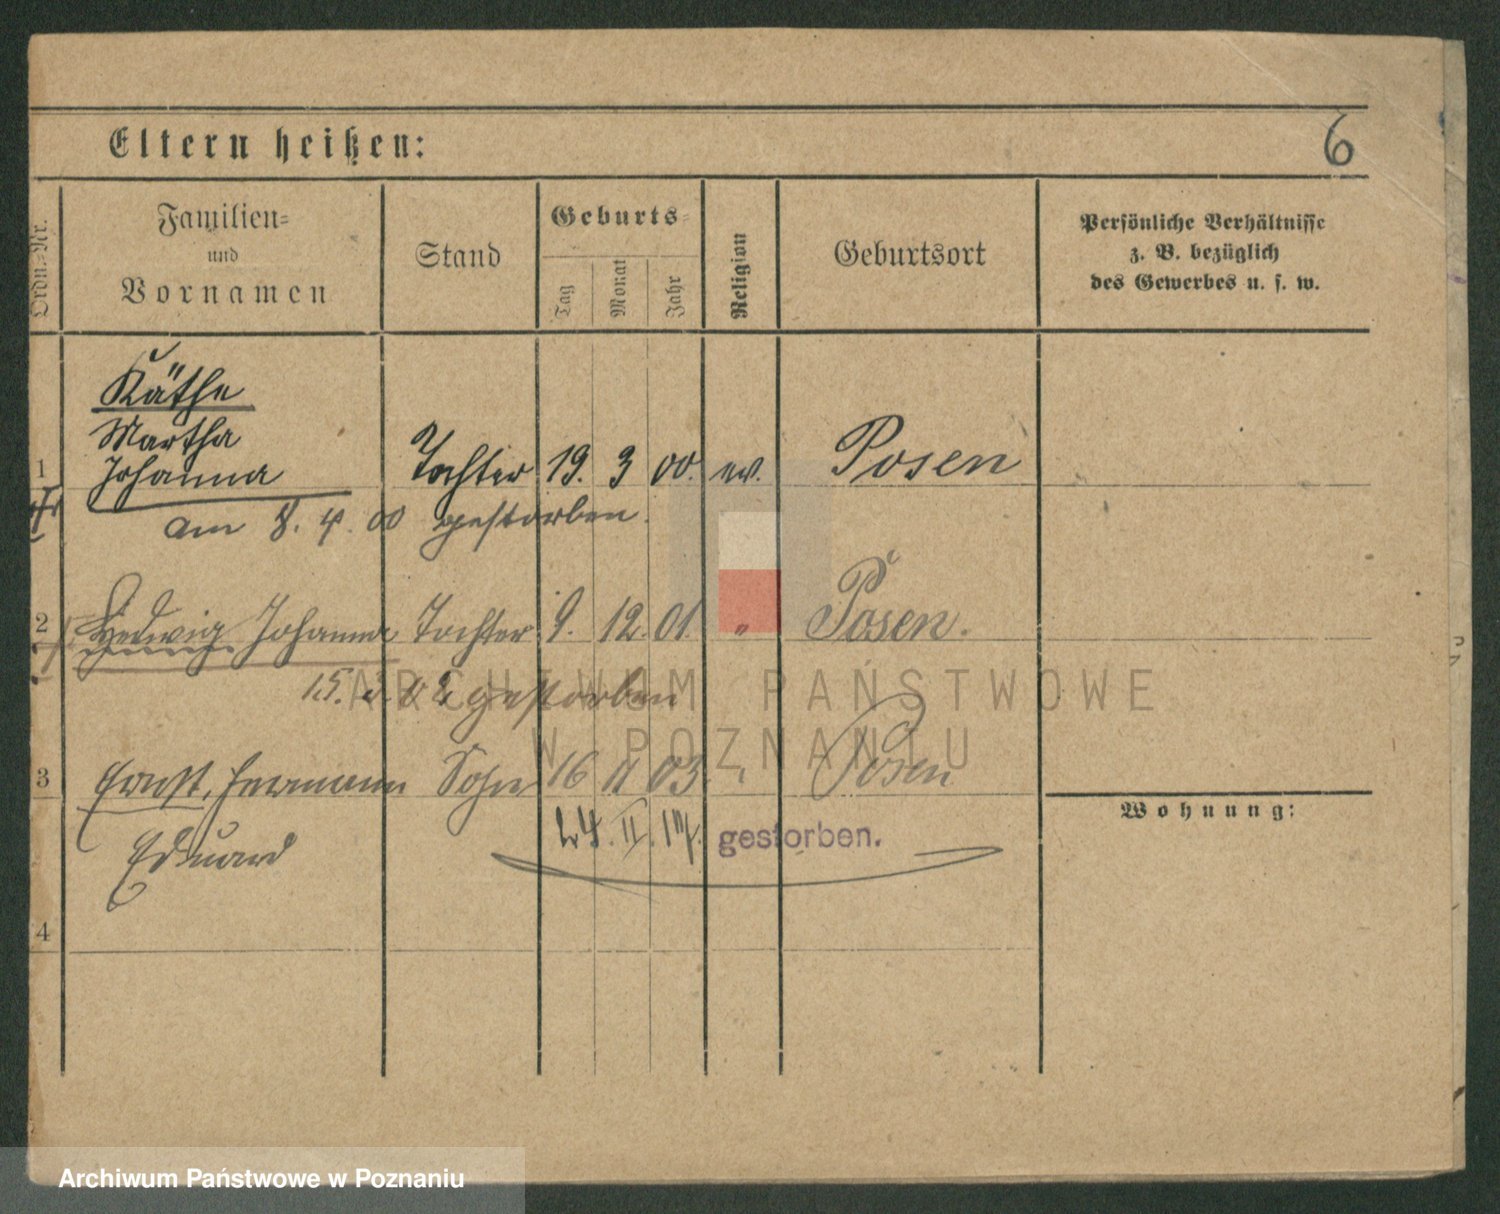 Eltern heißen:
6
Ordn.-Nr.
Familien-
und
Vornamen
Stand
Geburts-
Tag
Monat
Jahr
Religion
Geburtsort
Persönliche Verhältnisse
z. B. bezüglich
des Gewerbes u. s. w.
Käthe
Martha
1 Johanna Tochter 19. 3 00. ev. Posen
am 8. 4. 00 gestorben.
2 Hedwig Johanna Tochter 9. 12. 01. " Posen.
15. 3. 02 gestorben
ARCHIWUM PAŃSTWOWE
W POZNANIU
3 Ernst, Hermann Sohn 16 11 03. " Posen
Wohnung:
Eduard
24. II. 17. gestorben.
4
Archiwum Państwowe w Poznaniu